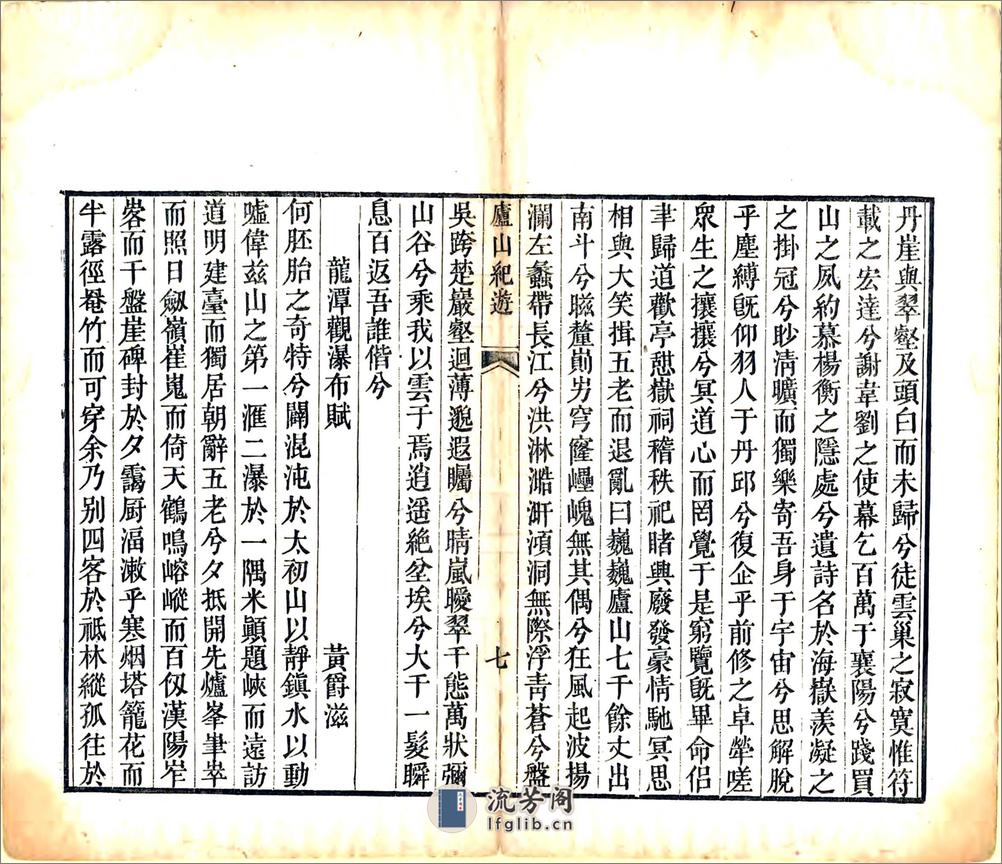 丹崖與翠壑及頭白而未歸兮徒雲巢之寂寞惟符
載之宏達兮謝韋劉之使幕乞百萬于襄陽兮踐買
山之夙約慕楊衡之隱處兮遺詩名於海嶽羨凝之
之掛冠兮眇清曠而獨樂寄吾身于宇宙兮思解脫
乎塵縛旣仰羽人于丹邱兮復企乎前修之卓犖嗟
衆生之攘攘兮冥道心而罔覺于是窮覽旣畢命侶
聿歸道歡亭憇嶽祠稽秩祀睹興廢發豪情馳冥思
相與大笑揖五老而退亂曰巍巍廬山七千餘丈出
南斗兮聮釐崱屴穹窿㠥嵬無其偶兮狂風起波揚
瀾左蠡帶長江兮洪淋澔汗澒洞無際浮青蒼兮盤
廬山紀遊
七
吳跨楚巖壑迴薄邈遐矚兮晴嵐曖翠千態萬狀彌
山谷兮乘我以雲于焉逍遥絶坌埃兮大千一髮瞬
息百返吾誰偕兮
龍潭觀瀑布賦 黃爵滋
何胚胎之奇特兮闢混沌於太初山以靜鎮水以動
噓偉茲山之第一滙二瀑於一隅米顚題峽而遠訪
道明建臺而獨居朝辭五老兮夕抵開先爐峯聿崒
而照日劔嶺崔嵬而倚天鶴鳴嵱嵷而百仭漢陽岝
峉而千盤崖碑封於夕靄厨湢漱乎寒烟塔籠花而
半露徑礙竹而可穿余乃别四客於祗林縱孤往於
流芳阁
lfglib.cn